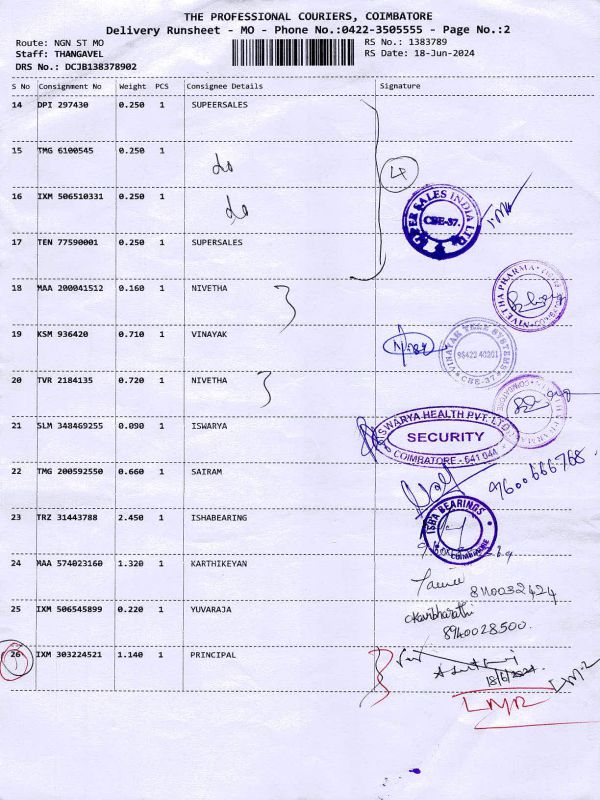 THE PROFESSIONAL COURIERS, COIMBATORE
Delivery Runsheet - MO - Phone No.:0422-3505555 - Page No.:2
Route: NGN ST MO
RS No.: 1383789
Staff: THANGAVEL
RS Date: 18-Jun-2024
DRS No.: DCJB138378902
S No Consignment No Weight PCS Consignee Details Signature
14 DPI 297430 0.250 1 SUPEERSALES
15 TMG 6100545 0.250 1 do
4
16 IXM 506510331 0.250 1 do
SALES INDIA LTD. CBE-37.
17 TEN 77590001 0.250 1 SUPERSALES
18 MAA 200041512 0.160 1 NIVETHA
NIVETHA PHARMA
19 KSM 936420 0.710 1 VINAYAK
VINAYAK TELE SYSTEMS 98422 40201 CBE-37
20 TVR 2184135 0.720 1 NIVETHA
21 SLM 348469255 0.090 1 ISWARYA
ISWARYA HEALTH PVT. LTD. SECURITY COIMBATORE - 641 044
22 TMG 200592550 0.660 1 SAIRAM
9600666768
23 TRZ 31443788 2.450 1 ISHABEARING
ISHA BEARINGS COIMBATORE
24 MAA 574023160 1.320 1 KARTHIKEYAN
8110032424
25 IXM 506545899 0.220 1 YUVARAJA
8940028500
26 IXM 303224521 1.140 1 PRINCIPAL
18/6/2024